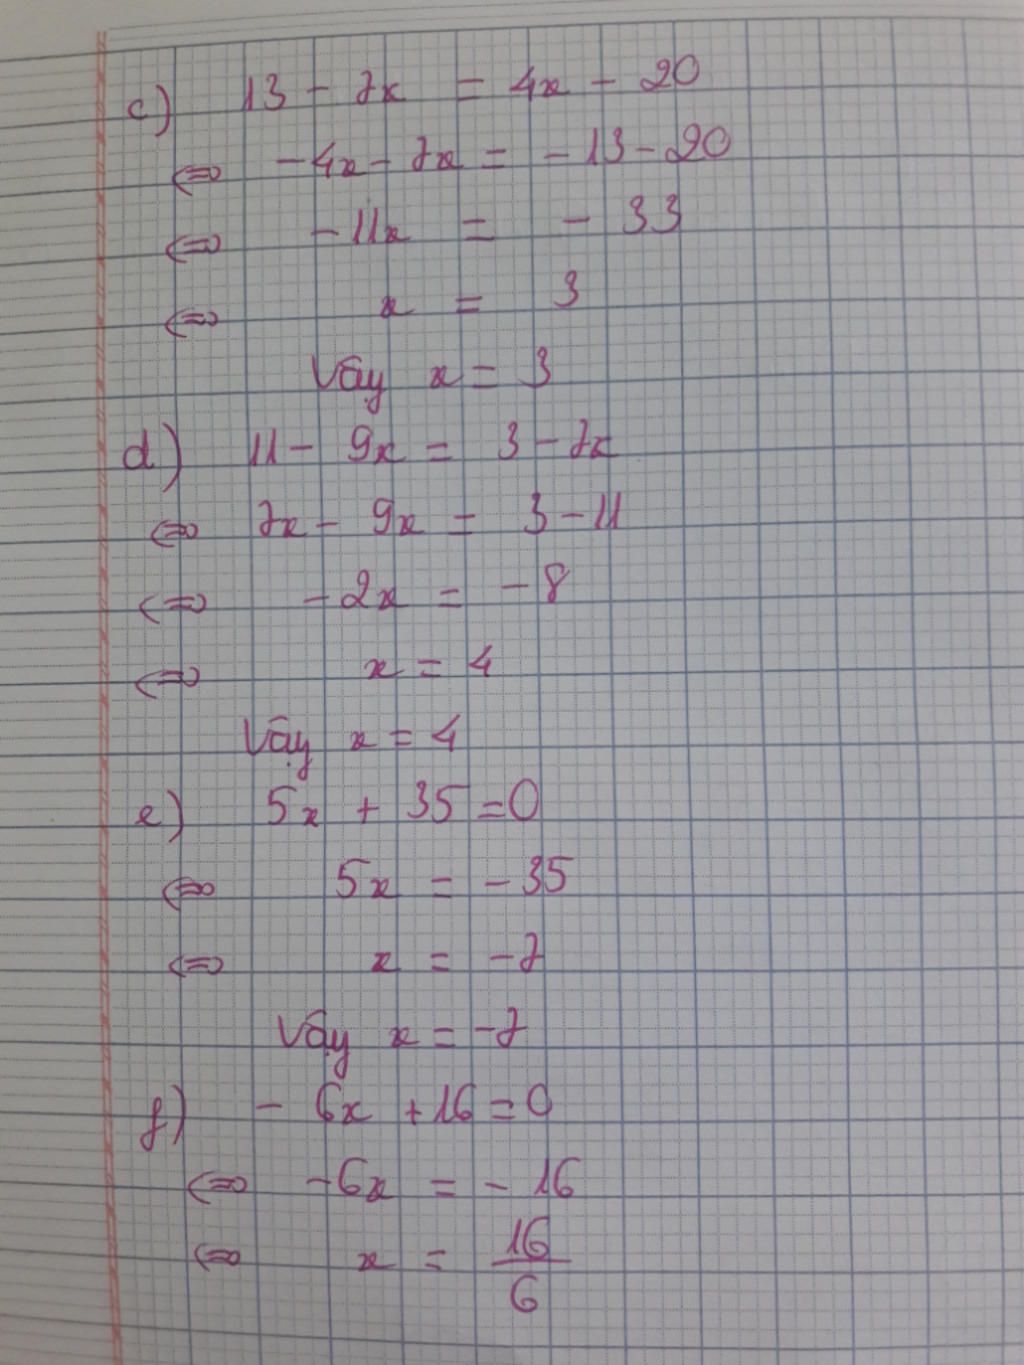 c) 13 - 7x = 4x - 20
⇔ -4x - 7x = -13 - 20
⇔ -11x = - 33
⇔ x = 3
Vậy x = 3
d) 11 - 9x = 3 - 7x
⇔ 7x - 9x = 3 - 11
⇔ -2x = -8
⇔ x = 4
Vậy x = 4
e) 5x + 35 = 0
⇔ 5x = -35
⇔ x = -7
Vậy x = -7
f) - 6x + 16 = 0
⇔ -6x = - 16
⇔ x = 16/6